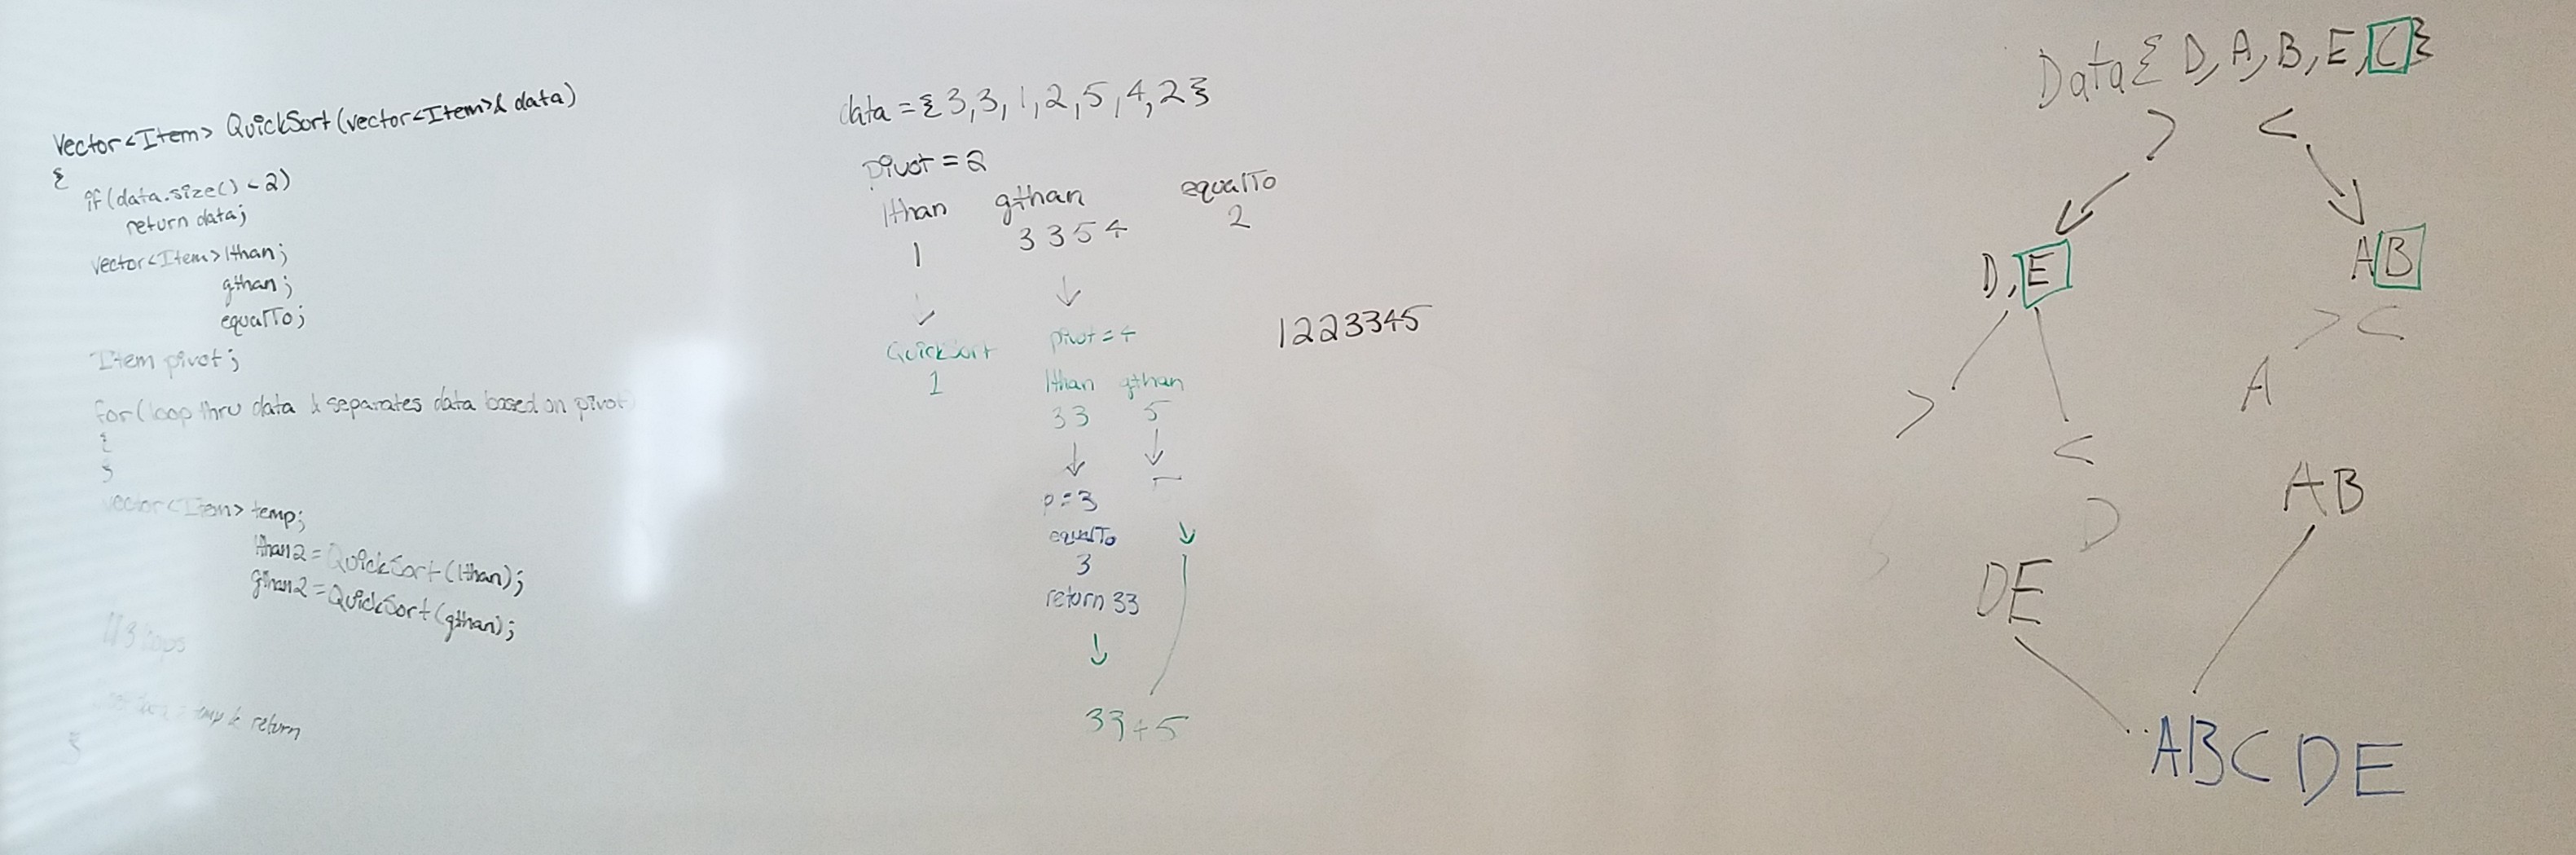 Vector<Item> QuickSort(vector<Item>& data)
{
if(data.size() < 2)
return data;
vector<Item> lthan;
gthan;
equalTo;
Item pivot;
for(loop thru data & separates data based on pivot)
{
}
vector<Item> temp;
lthan2 = QuickSort(lthan);
gthan2 = QuickSort(gthan);
// 3 loops
temp & return
}
data = {3,3,1,2,5,4,2}
pivot = 2
lthan gthan equalTo
1 3 3 5 4 2
QuickSort pivot = 4
1 lthan gthan
33 5
p = 3
equalTo
3
return 33
33 4 5
1223345
Data{ D, A, B, E, C}
> <
D, E A B
> <
A
> <
D
A B
DE
ABC DE